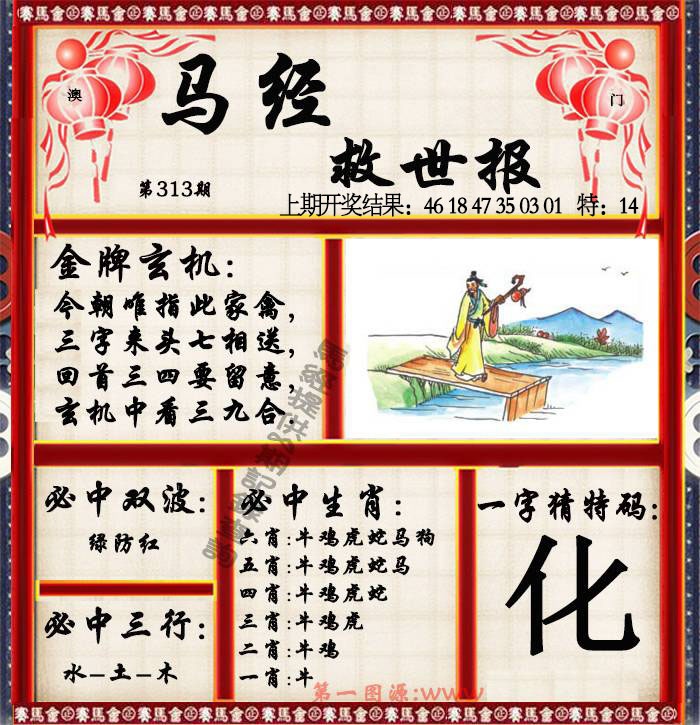 賽馬會 賽馬會 賽馬會 賽馬會 賽馬會 賽馬會 賽馬會 賽馬會
澳
门
马经
救世报
第313期
上期开奖结果：46 18 47 35 03 01 特：14
金牌玄机：
今朝唯指此家禽，
三字来头七相送，
回首三四要留意，
玄机中看三九合.
必中双波：
绿防红
必中三行：
水–土–木
必中生肖：
六肖：牛鸡虎蛇马狗
五肖：牛鸡虎蛇马
四肖：牛鸡虎蛇
三肖：牛鸡虎
二肖：牛鸡
一肖：牛
一字猜特码：
化
第一图源：www